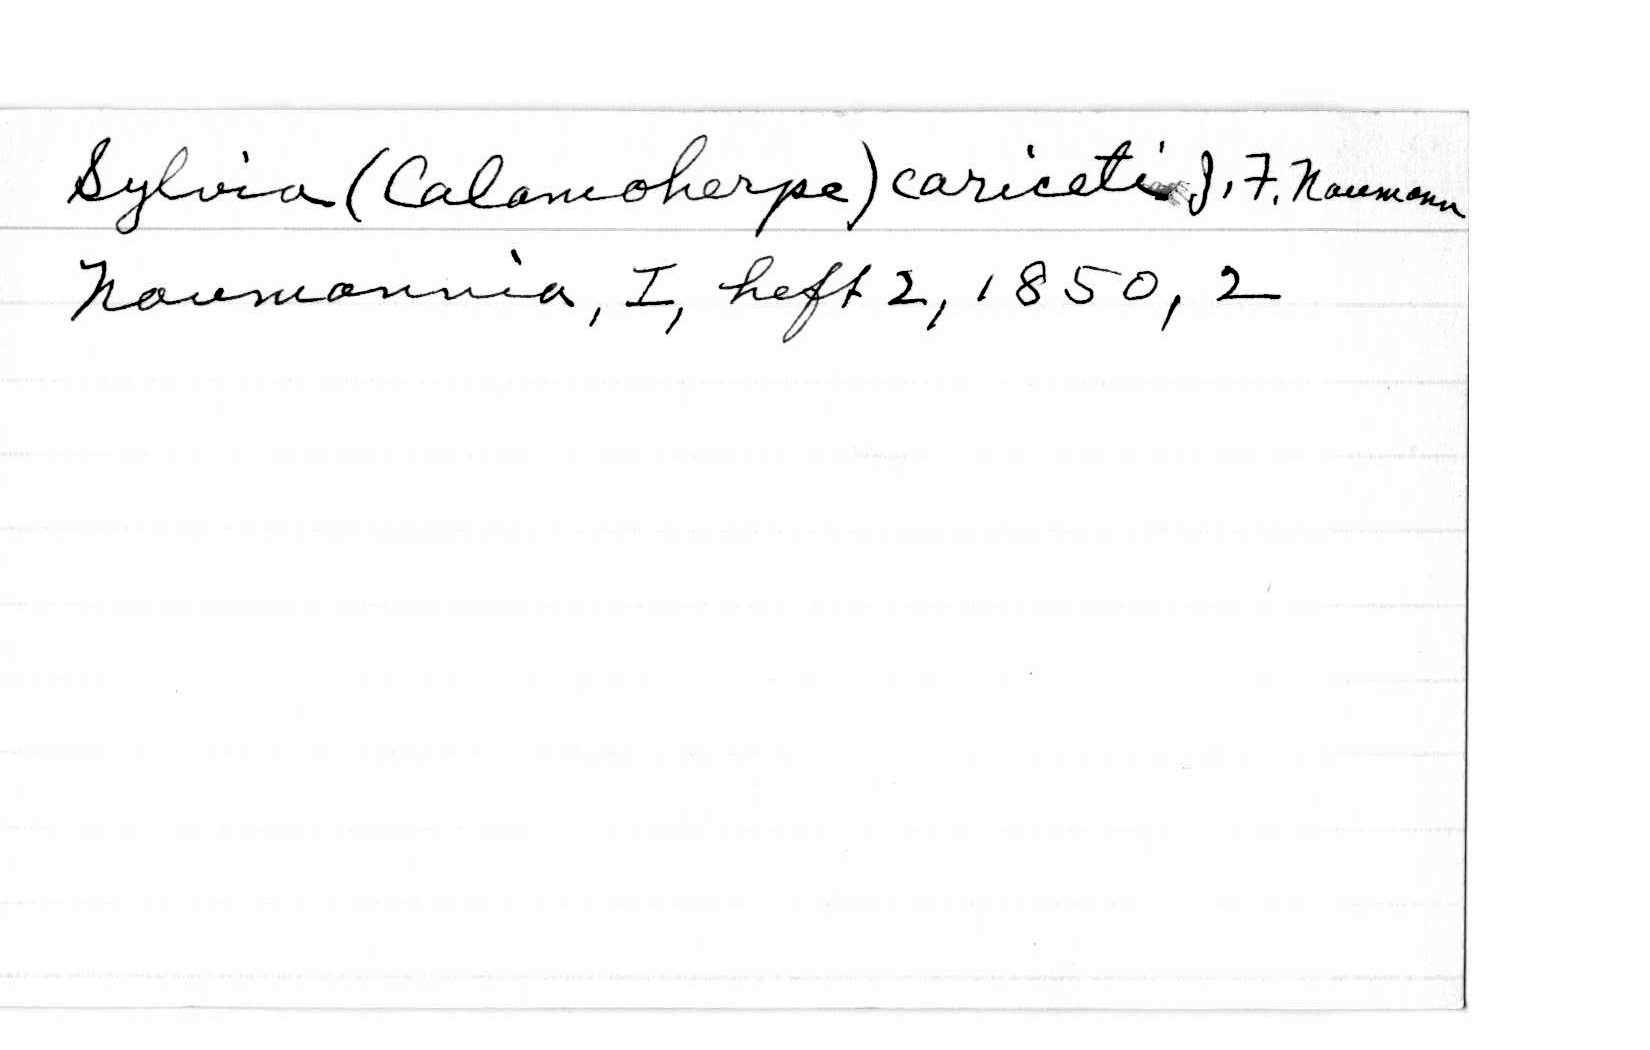 Sylvia (Calamoherpe) cariceti J. F. Naumann
Naumannia, I, heft 2, 1850, 2